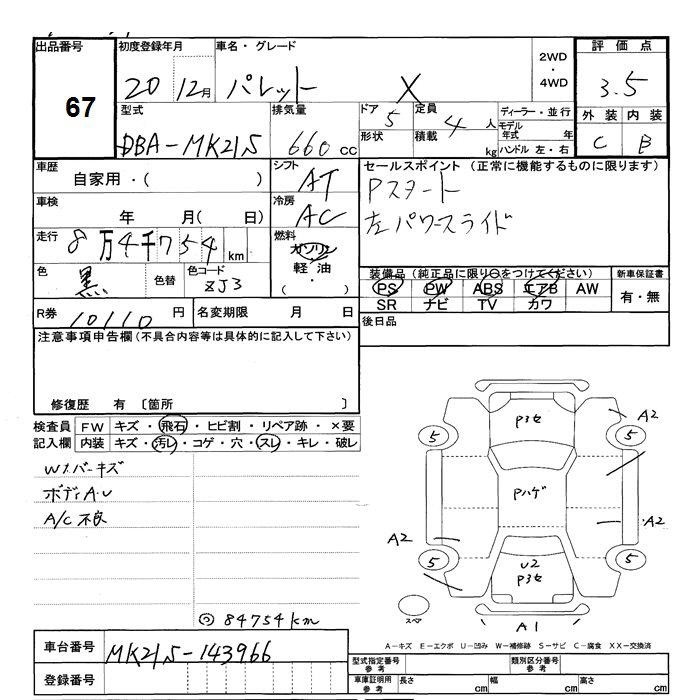 出品番号 初度登録年月 車名・グレード 2WD・4WD 評価点
67 20 12月 パレット X 3.5
型式 排気量 ドア 定員 ディーラー・並行 外装 内装
DBA-MK21S 660cc 5 4人 モデル年式 年 C B
形状 積載 kg ハンドル 左・右
車歴 シフト セールスポイント (正常に機能するものに限ります)
自家用・( ) AT Pスタート
車検 冷房 左パワースライド
年 月( 日) AC
走行 燃料
8万4千754km ガソリン
軽油
・( )
色 色替 色コード 装備品(純正品に限り○をつけてください) 新車保証書
黒 ZJ3 PS PW ABS エアB AW 有・無
SR ナビ TV カワ
R券 10110円 名変期限 月 日 後日品
注意事項申告欄(不具合内容等は具体的に記入して下さい)
修復歴 有 〔箇所 〕
検査員 FW キズ・飛石・ヒビ割・リペア跡・×要
記入欄 内装 キズ・汚レ・コゲ・穴・スレ・キレ・破レ
Wハバーキズ
ボディA.U
A/C不良
◎84754km
P3セ
A2
5
5
Pハゲ
A2
A2
5
5
U2
P3セ
スペア
A1
A-キズ E-エクボ U-凹み W-補修跡 S-サビ C-腐食 XX-交換済
車台番号 MK21S-143966
登録番号
型式指定番号 参考 類別区分番号 参考
車庫証明用 参考 長さ cm 幅 cm 高さ cm